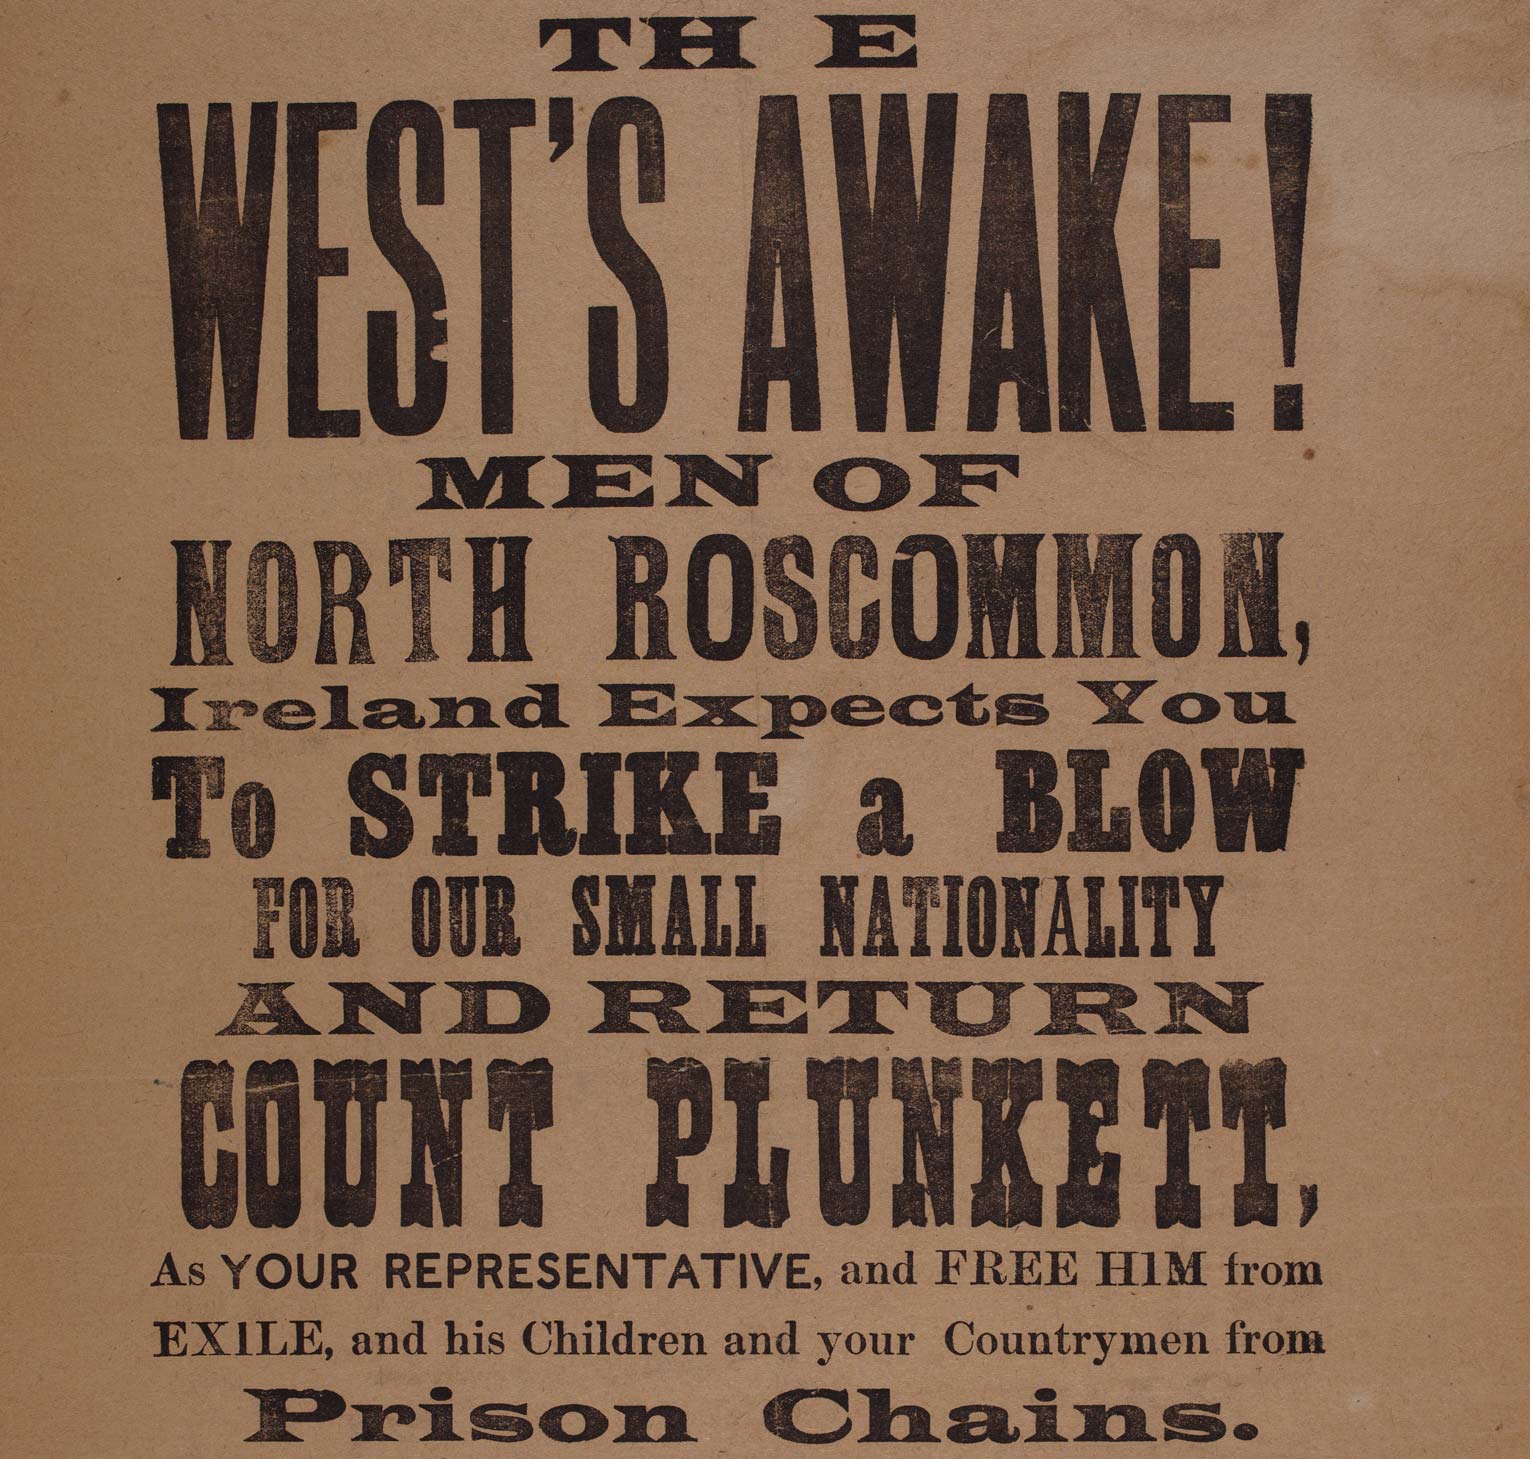 THE
WEST'S AWAKE!
MEN OF
NORTH ROSCOMMON,
Ireland Expects You
To STRIKE a BLOW
FOR OUR SMALL NATIONALITY
AND RETURN
COUNT PLUNKETT,
As YOUR REPRESENTATIVE, and FREE H1M from
EX1LE, and his Children and your Countrymen from
Prison Chains.